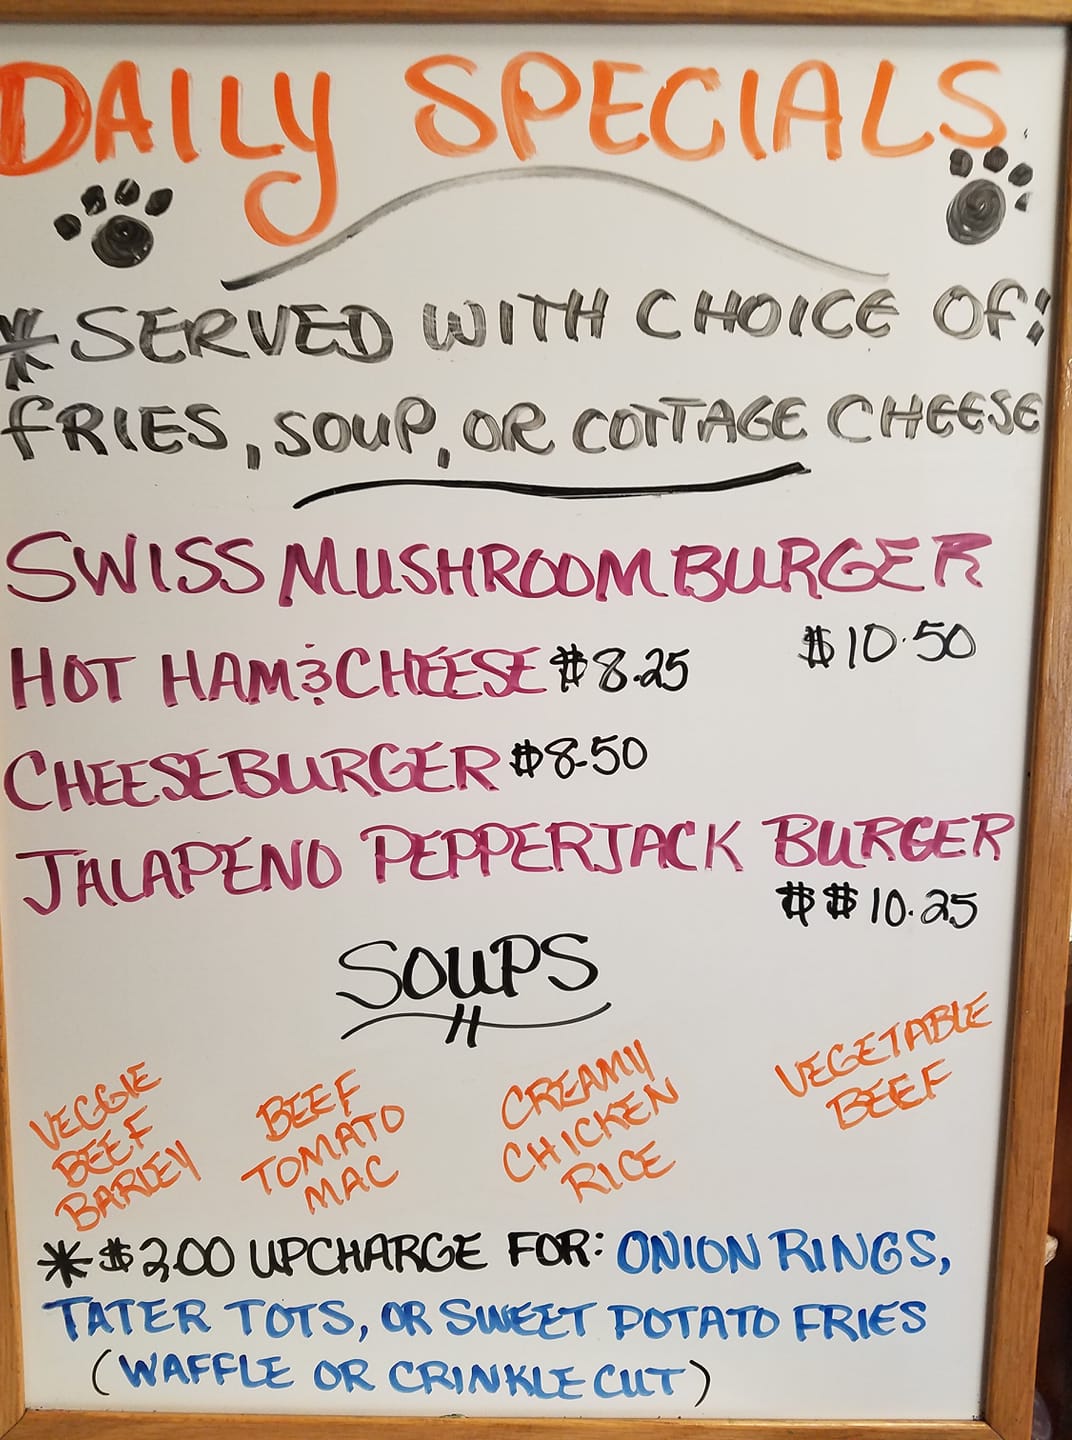 DAILY SPECIALS
*SERVED WITH CHOICE OF:
FRIES, SOUP, OR COTTAGE CHEESE
SWISS MUSHROOM BURGER
$10.50
HOT HAM & CHEESE $8.25
CHEESEBURGER $8.50
JALAPENO PEPPERJACK BURGER
$$10.25
SOUPS
VEGGIE
BEEF
BARLEY
BEEF
TOMATO
MAC
CREAMY
CHICKEN
RICE
VEGETABLE
BEEF
*$2.00 UPCHARGE FOR: ONION RINGS,
TATER TOTS, OR SWEET POTATO FRIES
(WAFFLE OR CRINKLE CUT)